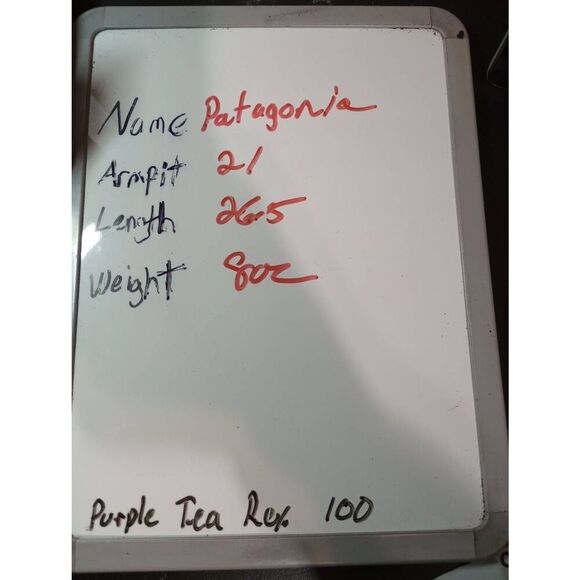 Name Patagonia
Armpit 21
Length 26.5
Weight 8oz
Purple Tea Rex 100